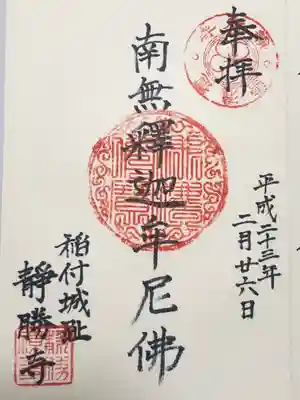 奉拝
南無釋迦牟尼佛
平成二十三年
二月廿六日
稲付城趾
靜勝寺